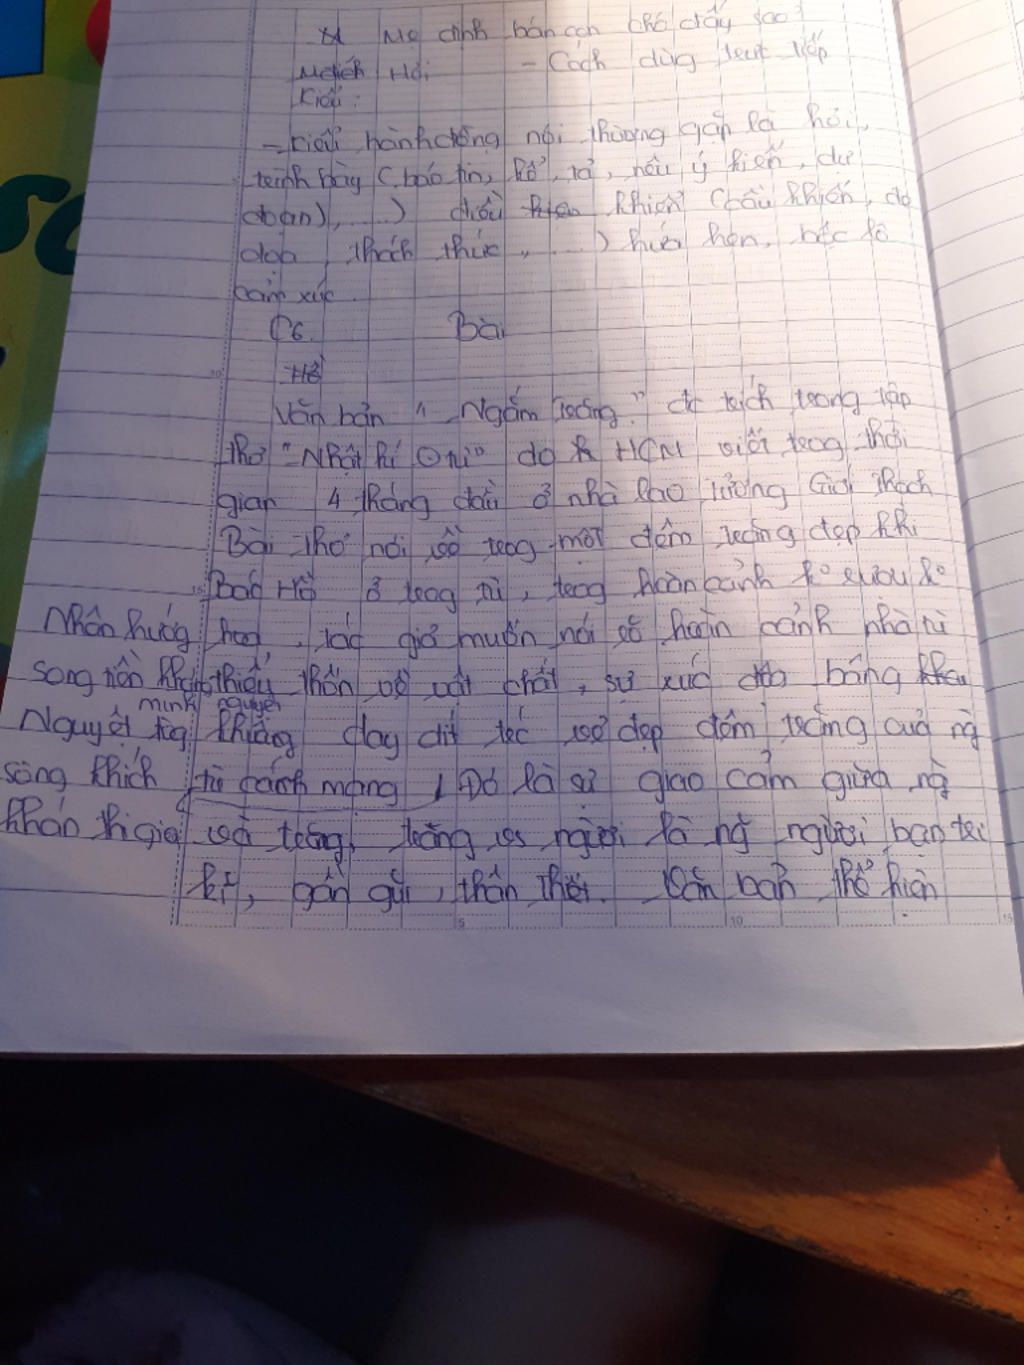 Mẹ định bán con chó đấy sao?
Hỏi - Cách dùng trực tiếp
Kiểu:
- Kiểu hành động nói thường gặp là hỏi,
trình bày (báo tin, kể, tả, nêu ý kiến, dự
đoán),.....) điều khiển (cầu khiến, đe
dọa, thách thức,.....) hứa hẹn, bộc lộ
cảm xúc.
C6. Bài
Văn bản "Ngắm trăng" đc trích trong tập
thơ "Nhật kí ở tù" do HCM viết trog thời
gian 4 tháng đầu ở nhà lao Tưởng Giới Thạch
Bài thơ nói về trog một đêm trăng đẹp khi
Bác Hồ ở trog tù, trog hoàn cảnh ko rượu ko
Nhân hướng hoa, tác giả muốn nói về hoàn cảnh nhà tù
song tiền khán thiếu thốn về vật chất, sự xúc
minh nguyệt
Nguyệt tòg khiằng day dứt trc vẻ đẹp đêm trăng của ng
song khích tù cách mạng, Đó là sự giao cảm giữa ng
khán thi gia và trăng, trăng vs người là ng người bạn tri
kỉ, gần gũi, thân thiết. Văn bản thể hiện